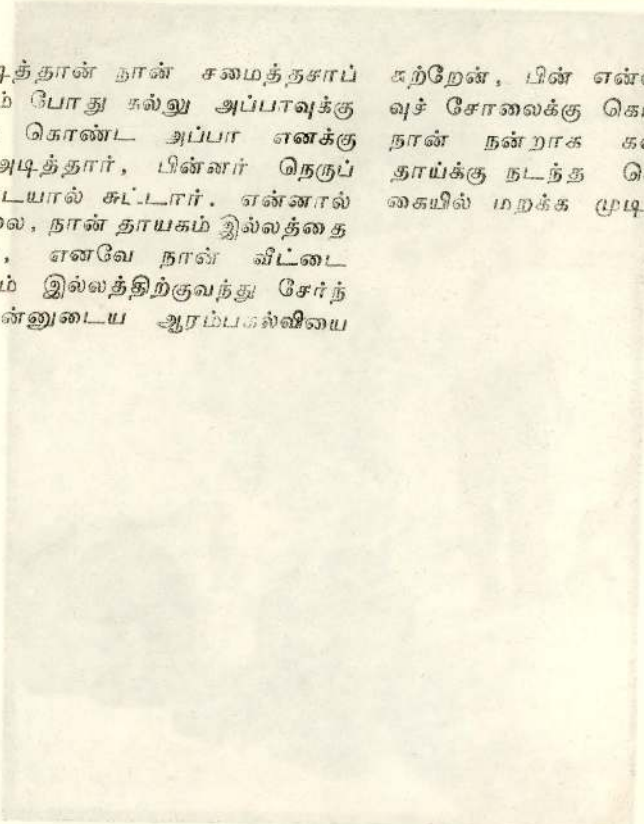 டித்தான் நான் சமைத்தசாப்
ம் போது கல்லு அப்பாவுக்கு
கொண்ட அப்பா எனக்கு
அடித்தார், பின்னர் நெருப்
டையால் சுட்டார். என்னால்
லை, நான் தாயகம் இல்லத்தை
, எனவே நான் வீட்டை
ம் இல்லத்திற்குவந்து சேர்ந்
ன்னுடைய ஆரம்பகல்வியை
கற்றேன், பின் என்
வுச் சோலைக்கு கொ
நான் நன்றாக கல்
தாய்க்கு நடந்த கொ
கையில் மறக்க முடி